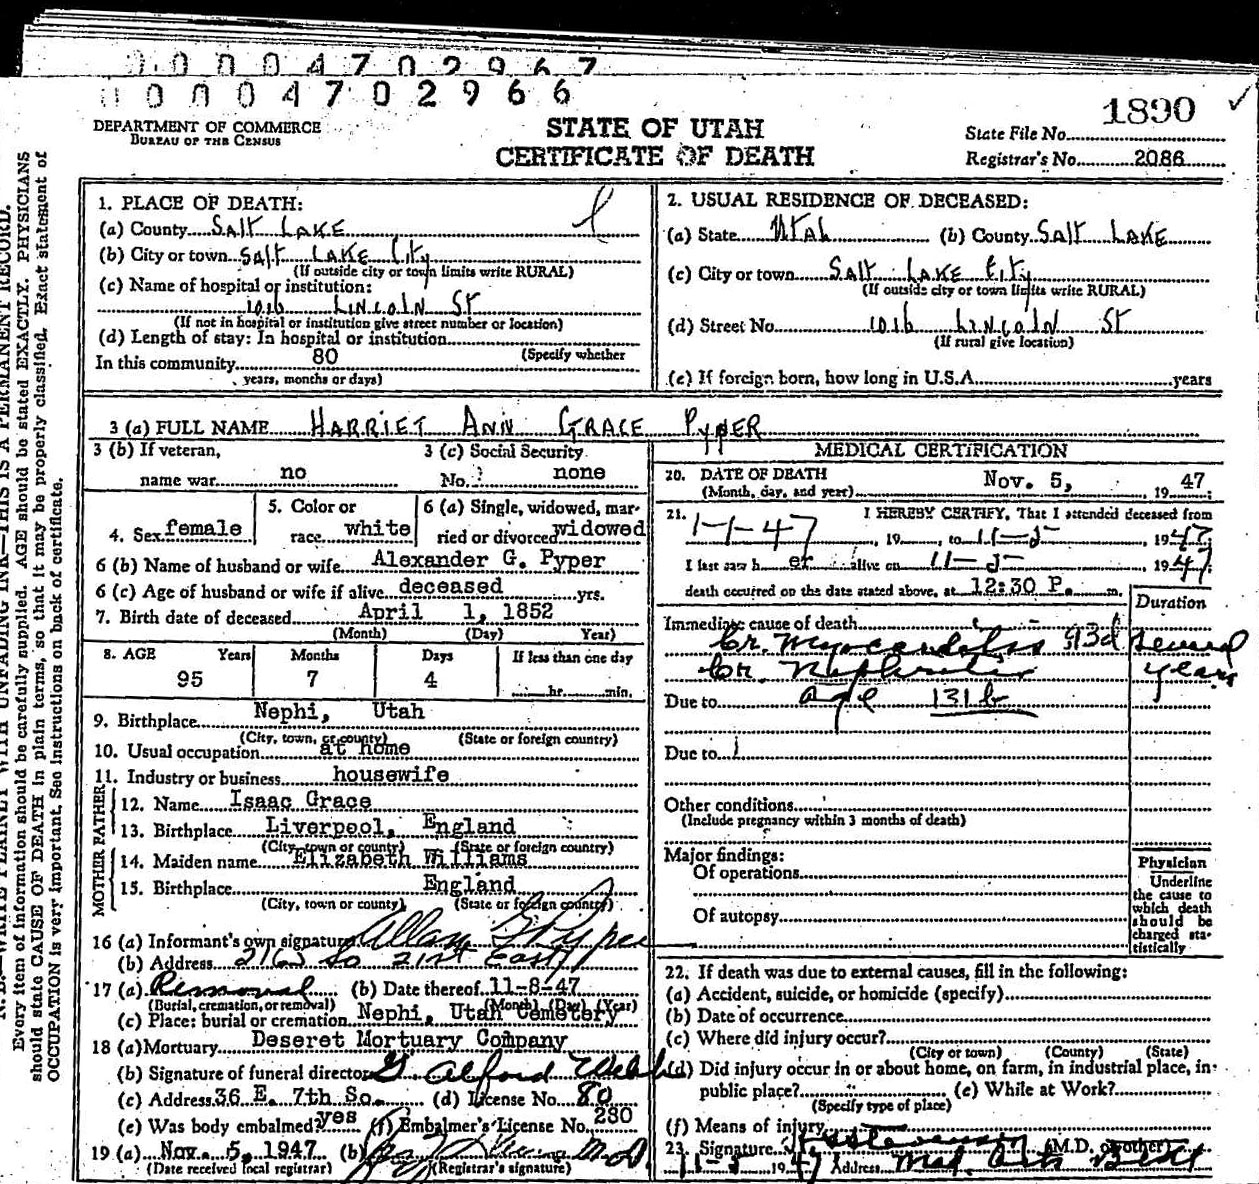 0000470 2967
0000470 2966
1890 ✓
DEPARTMENT OF COMMERCE
BUREAU OF THE CENSUS
STATE OF UTAH
CERTIFICATE OF DEATH
State File No.
Registrar's No. 2086
Every item of information should be carefully supplied. AGE should be stated EXACTLY. PHYSICIANS
should state CAUSE OF DEATH in plain terms, so that it may be properly classified. Exact statement of
OCCUPATION is very important. See instructions on back of certificate.
1. PLACE OF DEATH:
(a) County SALT LAKE
(b) City or town SALT LAKE City
(If outside city or town limits write RURAL)
(c) Name of hospital or institution:
1016 LINCOLN ST
(If not in hospital or institution give street number or location)
(d) Length of stay: In hospital or institution
(Specify whether
In this community 80
years, months or days)
2. USUAL RESIDENCE OF DECEASED:
(a) State UTAH (b) County SALT LAKE
(c) City or town SALT LAKE City
(If outside city or town limits write RURAL)
(d) Street No. 1016 LINCOLN ST
(If rural give location)
(e) If foreign born, how long in U.S.A. years
3 (a) FULL NAME HARRIET ANN GRACE PYPER
3 (b) If veteran,
name war no
3 (c) Social Security
No. none
4. Sex female
5. Color or
race white
6 (a) Single, widowed, mar-
ried or divorced widowed
6 (b) Name of husband or wife Alexander G. Pyper
6 (c) Age of husband or wife if alive deceased yrs.
7. Birth date of deceased April 1, 1852
(Month) (Day) Year)
8. AGE Years Months Days If less than one day
95 7 4 hr. min.
9. Birthplace Nephi, Utah
(City, town, or county) (State or foreign country)
10. Usual occupation at home
11. Industry or business housewife
FATHER
12. Name Isaac Grace
13. Birthplace Liverpool, England
(City, town or county) (State or foreign country)
MOTHER
14. Maiden name Elizabeth Williams
15. Birthplace England
(City, town or county) (State or foreign country)
16 (a) Informant's own signature Allan G Pyper
(b) Address So 21st East
17 (a) Removal (b) Date thereof 11-8-47
(Burial, cremation, or removal) (Month) (Day) (Year)
(c) Place: burial or cremation Nephi, Utah Cemetery
18 (a) Mortuary Deseret Mortuary Company
(b) Signature of funeral director Alford
(c) Address 36 E. 7th So. (d) License No. 80
(e) Was body embalmed? yes (f) Embalmer's License No. 280
19 (a) Nov. 5, 1947 (b) M.D.
(Date received local registrar) (Registrar's signature)
MEDICAL CERTIFICATION
20. DATE OF DEATH Nov. 5, 1947
(Month, day, and year)
21. I HEREBY CERTIFY, That I attended deceased from
1-1-47, 19, to 11-5, 1947
I last saw her alive on 11-5 1947
death occurred on the date stated above, at 12:30 P. m.
Duration
Immediate cause of death
Cr. Myocarditis 93d several
Cr. Nephritis years
Due to age 131b
Due to
Other conditions
(Include pregnancy within 3 months of death)
Major findings:
Of operations
Of autopsy
Physician
Underline
the cause to
which death
should be
charged sta-
tistically
22. If death was due to external causes, fill in the following:
(a) Accident, suicide, or homicide (specify)
(b) Date of occurrence
(c) Where did injury occur?
(City or town) (County) (State)
(d) Did injury occur in or about home, on farm, in industrial place, in
public place? (e) While at Work?
(Specify type of place)
(f) Means of injury
23. Signature (M.D. or other)
11-5 1947 Address Med. Arts